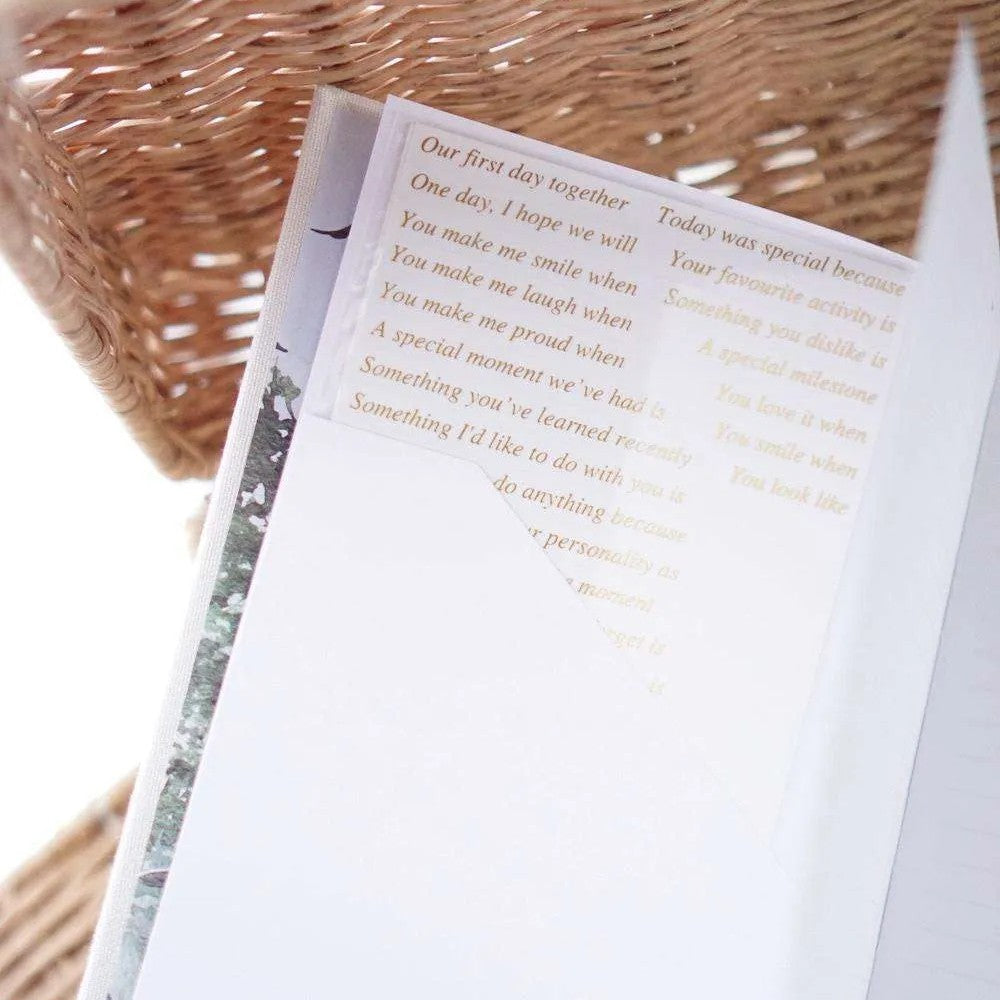 Our first day together
One day, I hope we will
You make me smile when
You make me laugh when
You make me proud when
A special moment we've had is
Something you've learned recently
Something I'd like to do with you is
do anything because
personality as
moment
is
is
Today was special because
Your favourite activity is
Something you dislike is
A special milestone
You love it when
You smile when
You look like